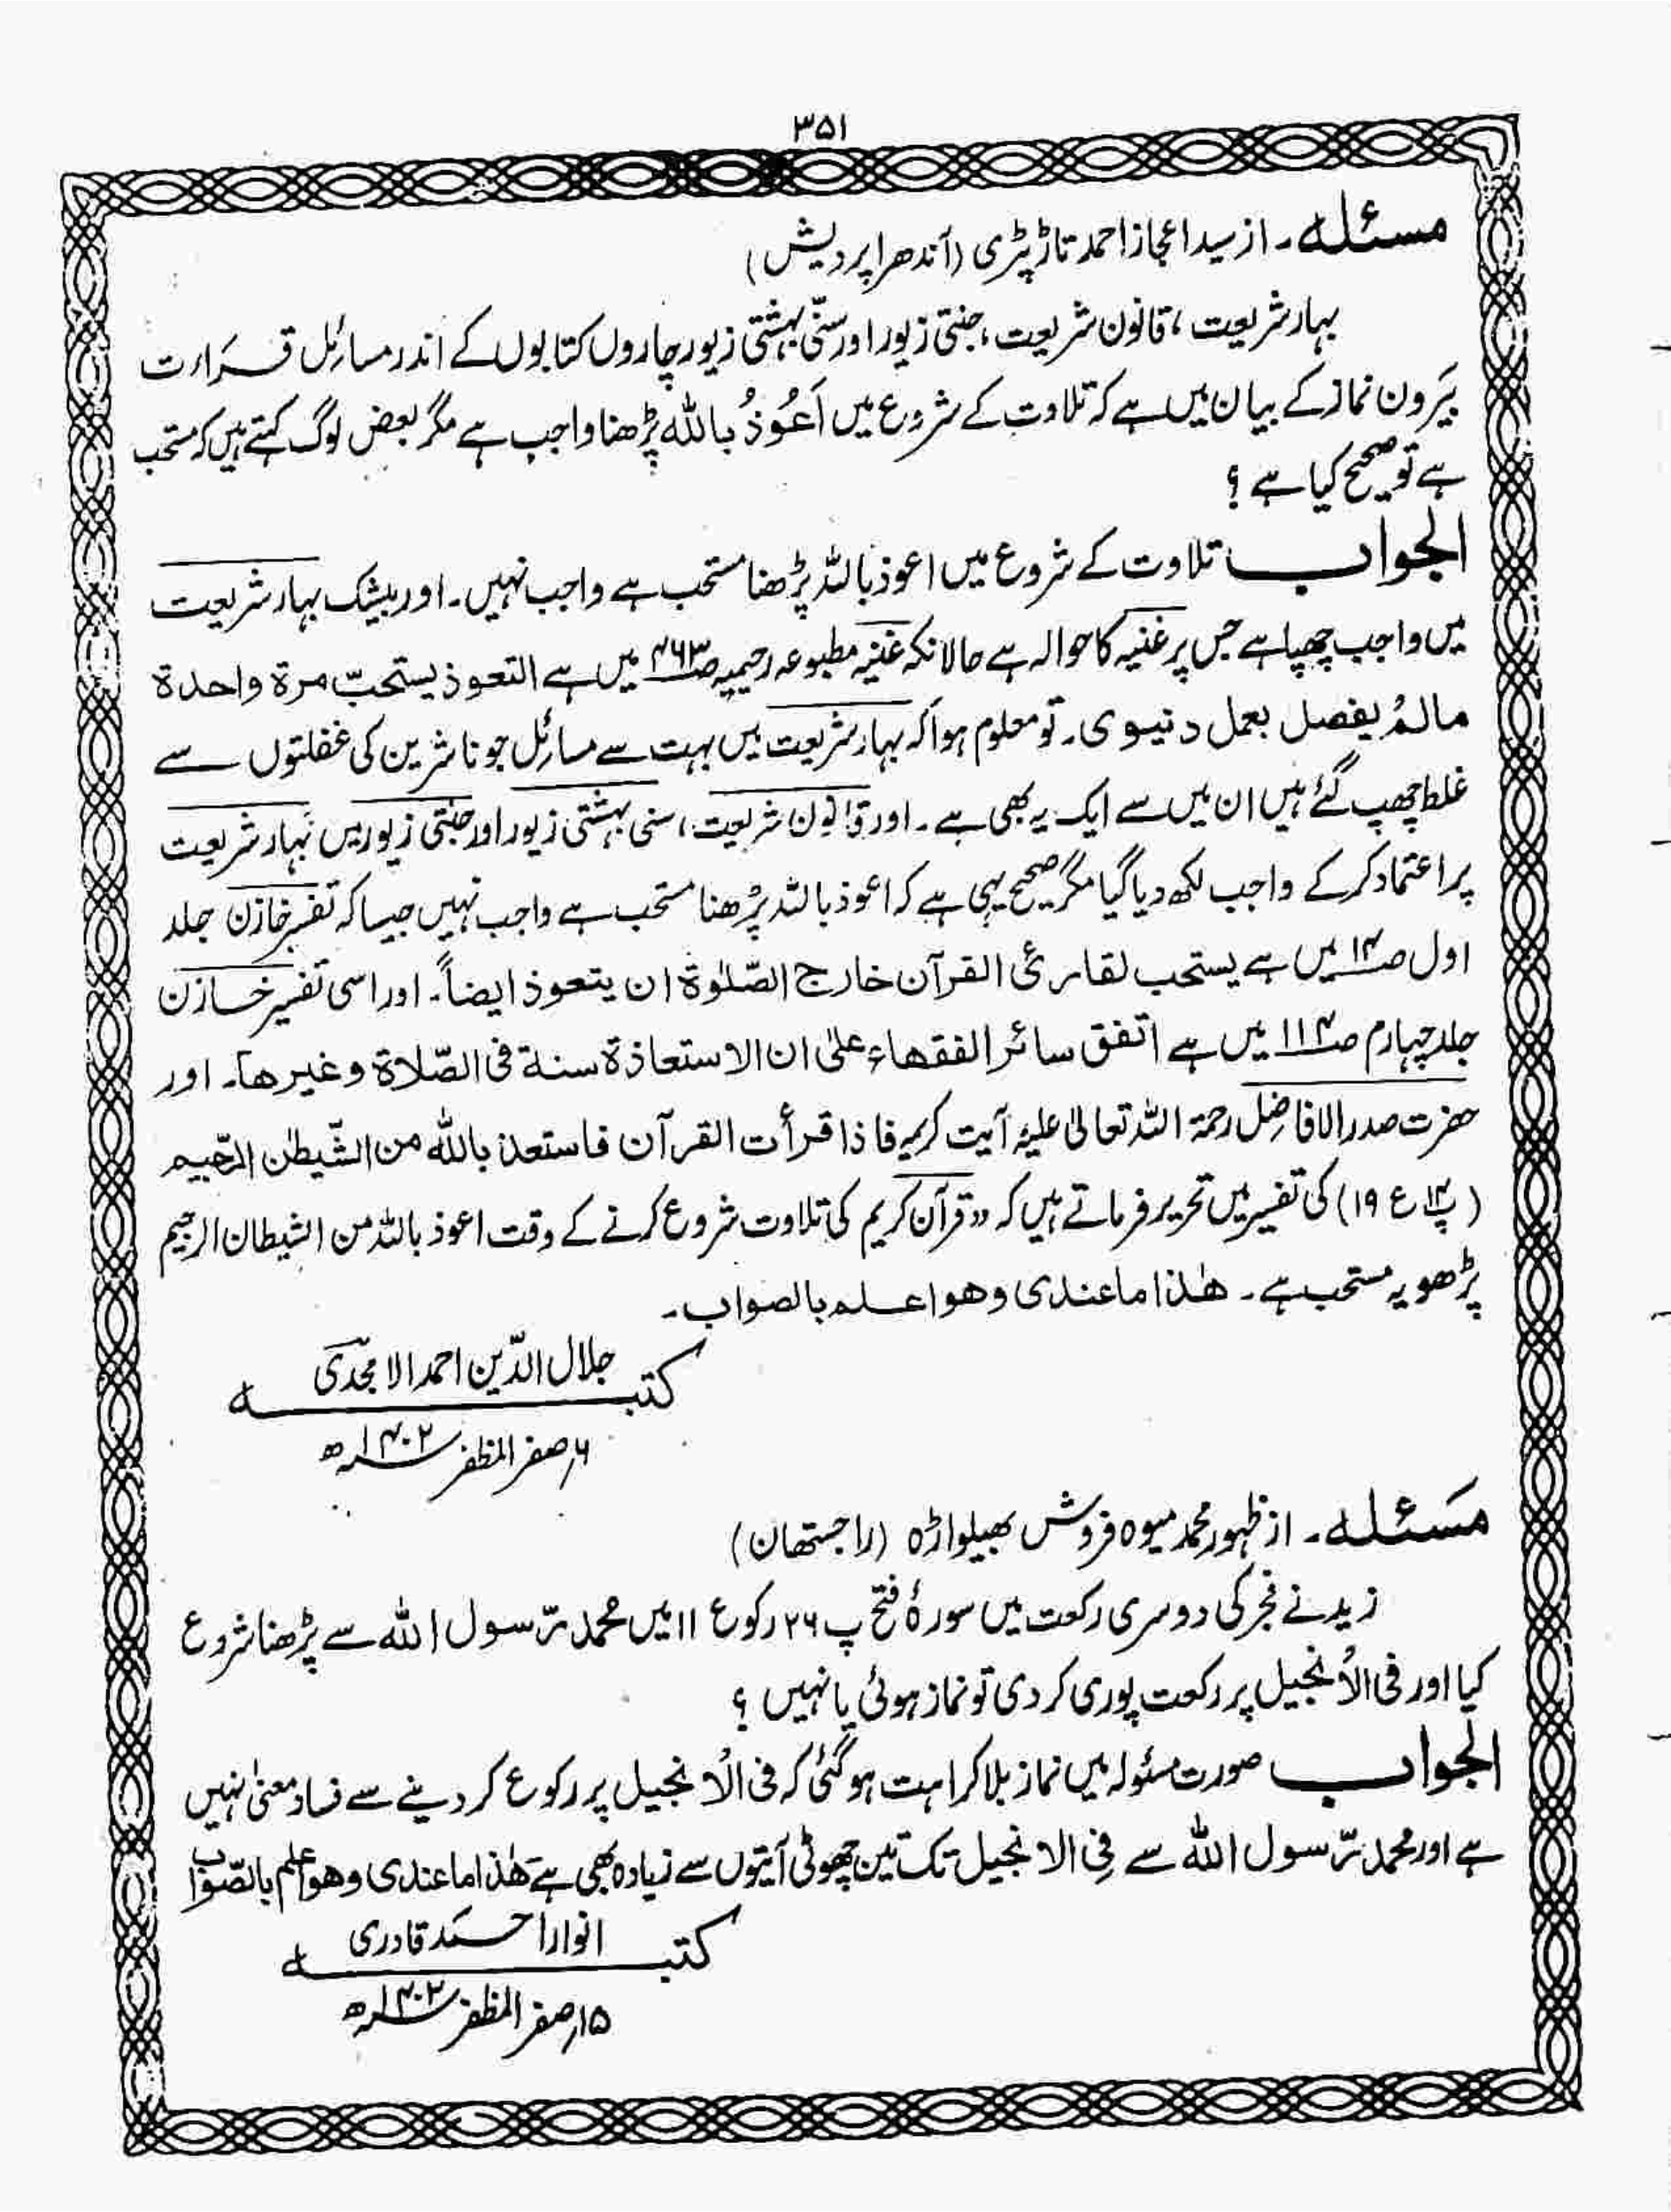 ۳۵۱
مسئله۔ از سید اعجاز احمد تاڑپٹری (آندھرا پردیش)
بہار شریعت، قانون شریعت، جنتی زیور اور سنّی بہشتی زیور چاروں کتابوں کے اندر مسائل قراءت
بیرون نماز کے بیان میں ہے کہ تلاوت کے شروع میں اَعُوْذُ باللہ پڑھنا واجب ہے مگر بعض لوگ کہتے ہیں کہ مستحب
ہے تو صحیح کیا ہے ؟
الجواب تلاوت کے شروع میں اعوذ باللہ پڑھنا مستحب ہے واجب نہیں۔ اور بیشک بہار شریعت
میں واجب چھپا ہے جس پر غنیہ کا حوالہ ہے حالانکہ غنیہ مطبوعہ رحیمیہ ص۴۶۳ میں ہے التعوذ یستحبّ مرة واحدة
مالمْ یفصل بعمل دنیوی۔ تو معلوم ہوا کہ بہار شریعت میں بہت سے مسائل جو ناشرین کی غفلتوں سے
غلط چھپ گئے ہیں ان میں سے ایک یہ بھی ہے۔ اور قانون شریعت، سنی بہشتی زیور اور جنتی زیور میں بہار شریعت
پر اعتماد کرکے واجب لکھ دیا گیا مگر صحیح یہی ہے کہ اعوذ باللہ پڑھنا مستحب ہے واجب نہیں جیسا کہ تفسیر خازن جلد
اول ص۱۴ میں ہے یستحب لقارئ القرآن خارج الصّلوٰة ان یتعوذ ایضاً۔ اور اسی تفسیر خازن
جلد چہارم ص۱۱۴ میں ہے اتفق سائر الفقهاء علیٰ ان الاستعاذة سنة فی الصّلاة وغیرها۔ اور
حضرت صدر الافاضل رحمۃ اللہ تعالیٰ علیہ آیت کریمہ فاذا قرأت القرآن فاستعذ باللہ من الشّیطٰن الرّجیم
(پ۱۴ ع ۱۹) کی تفسیر میں تحریر فرماتے ہیں کہ ،،قرآن کریم کی تلاوت شروع کرنے کے وقت اعوذ باللہ من الشیطان الرجیم
پڑھو یہ مستحب ہے۔ هٰذا ما عندی وهو اعلم بالصواب۔
جلال الدّین احمد الامجدی
کتبہ
۶؍صفر المظفر ۱۴۰۲ھ
مسئله۔ از ظہور محمد میوہ فروش بھیلواڑہ (راجستھان)
زید نے فجر کی دوسری رکعت میں سورۂ فتح پ ۲۶ رکوع ۱۱ میں محمد رّسول اللہ سے پڑھنا شروع
کیا اور فی الْانجیل پر رکعت پوری کردی تو نماز ہوئی یا نہیں ؟
الجواب صورت مسئولہ میں نماز بلا کراہت ہوگئی کہ فی الْانجیل پر رکوع کردینے سے فساد معنیٰ نہیں
ہے اور محمد رّسول اللہ سے فِی الانجیل تک تین چھوٹی آیتوں سے زیادہ بھی ہے هٰذا ما عندی وهو اعلم بالصّواب
انوار احمد قادری
کتبہ
۱۵؍صفر المظفر ۱۴۰۲ھ